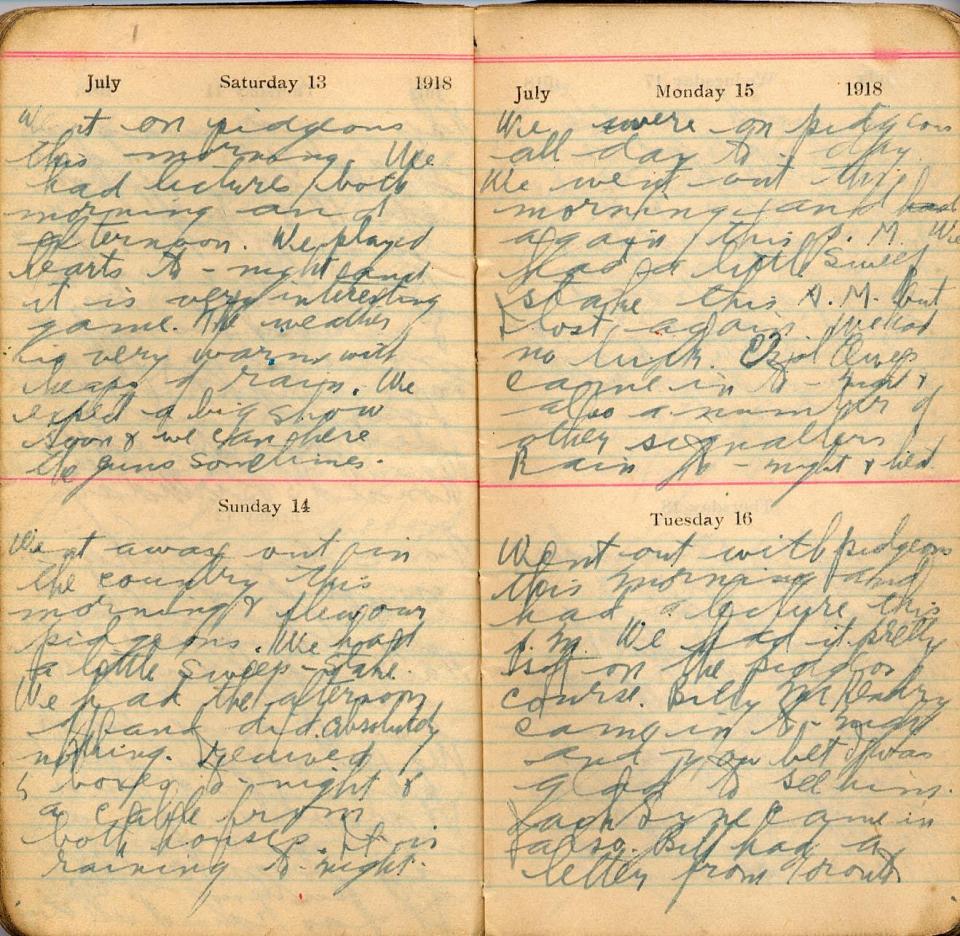 July Saturday 13 1918
Went on pidgeons
this morning. We
had lectures both
morning and
afternoon. We played
hearts to-night and
it is very interesting
game. The weather
is very warm with
heaps of rain. We
expect a big show
soon & we can here
the guns sometimes.
Sunday 14
Went away out in
the country this
morning & flew our
pidgeons. We had
a little sweep-stake.
We had the afternoon
off and did absolutely
nothing. Received
5 boxes to-night &
a cable from
both houses. It is
raining to-night.
July Monday 15 1918
We were on pidgeons
all day to-day.
We went out this
morning and had
again this P.M. We
had a little sweep
stake this A.M. but
I lost again. We had
no luck.
came in to-night &
also a number of
other signallers
Rain to-night &
Tuesday 16
Went out with pidgeons
this morning and
had a lecture this
P.M. We had it pretty
hot on the pidgeon
course. Billy McKendry
came in to-night
and you bet I was
glad to see him.
Jack Syne came in
also. Bill had a
letter from Toronto